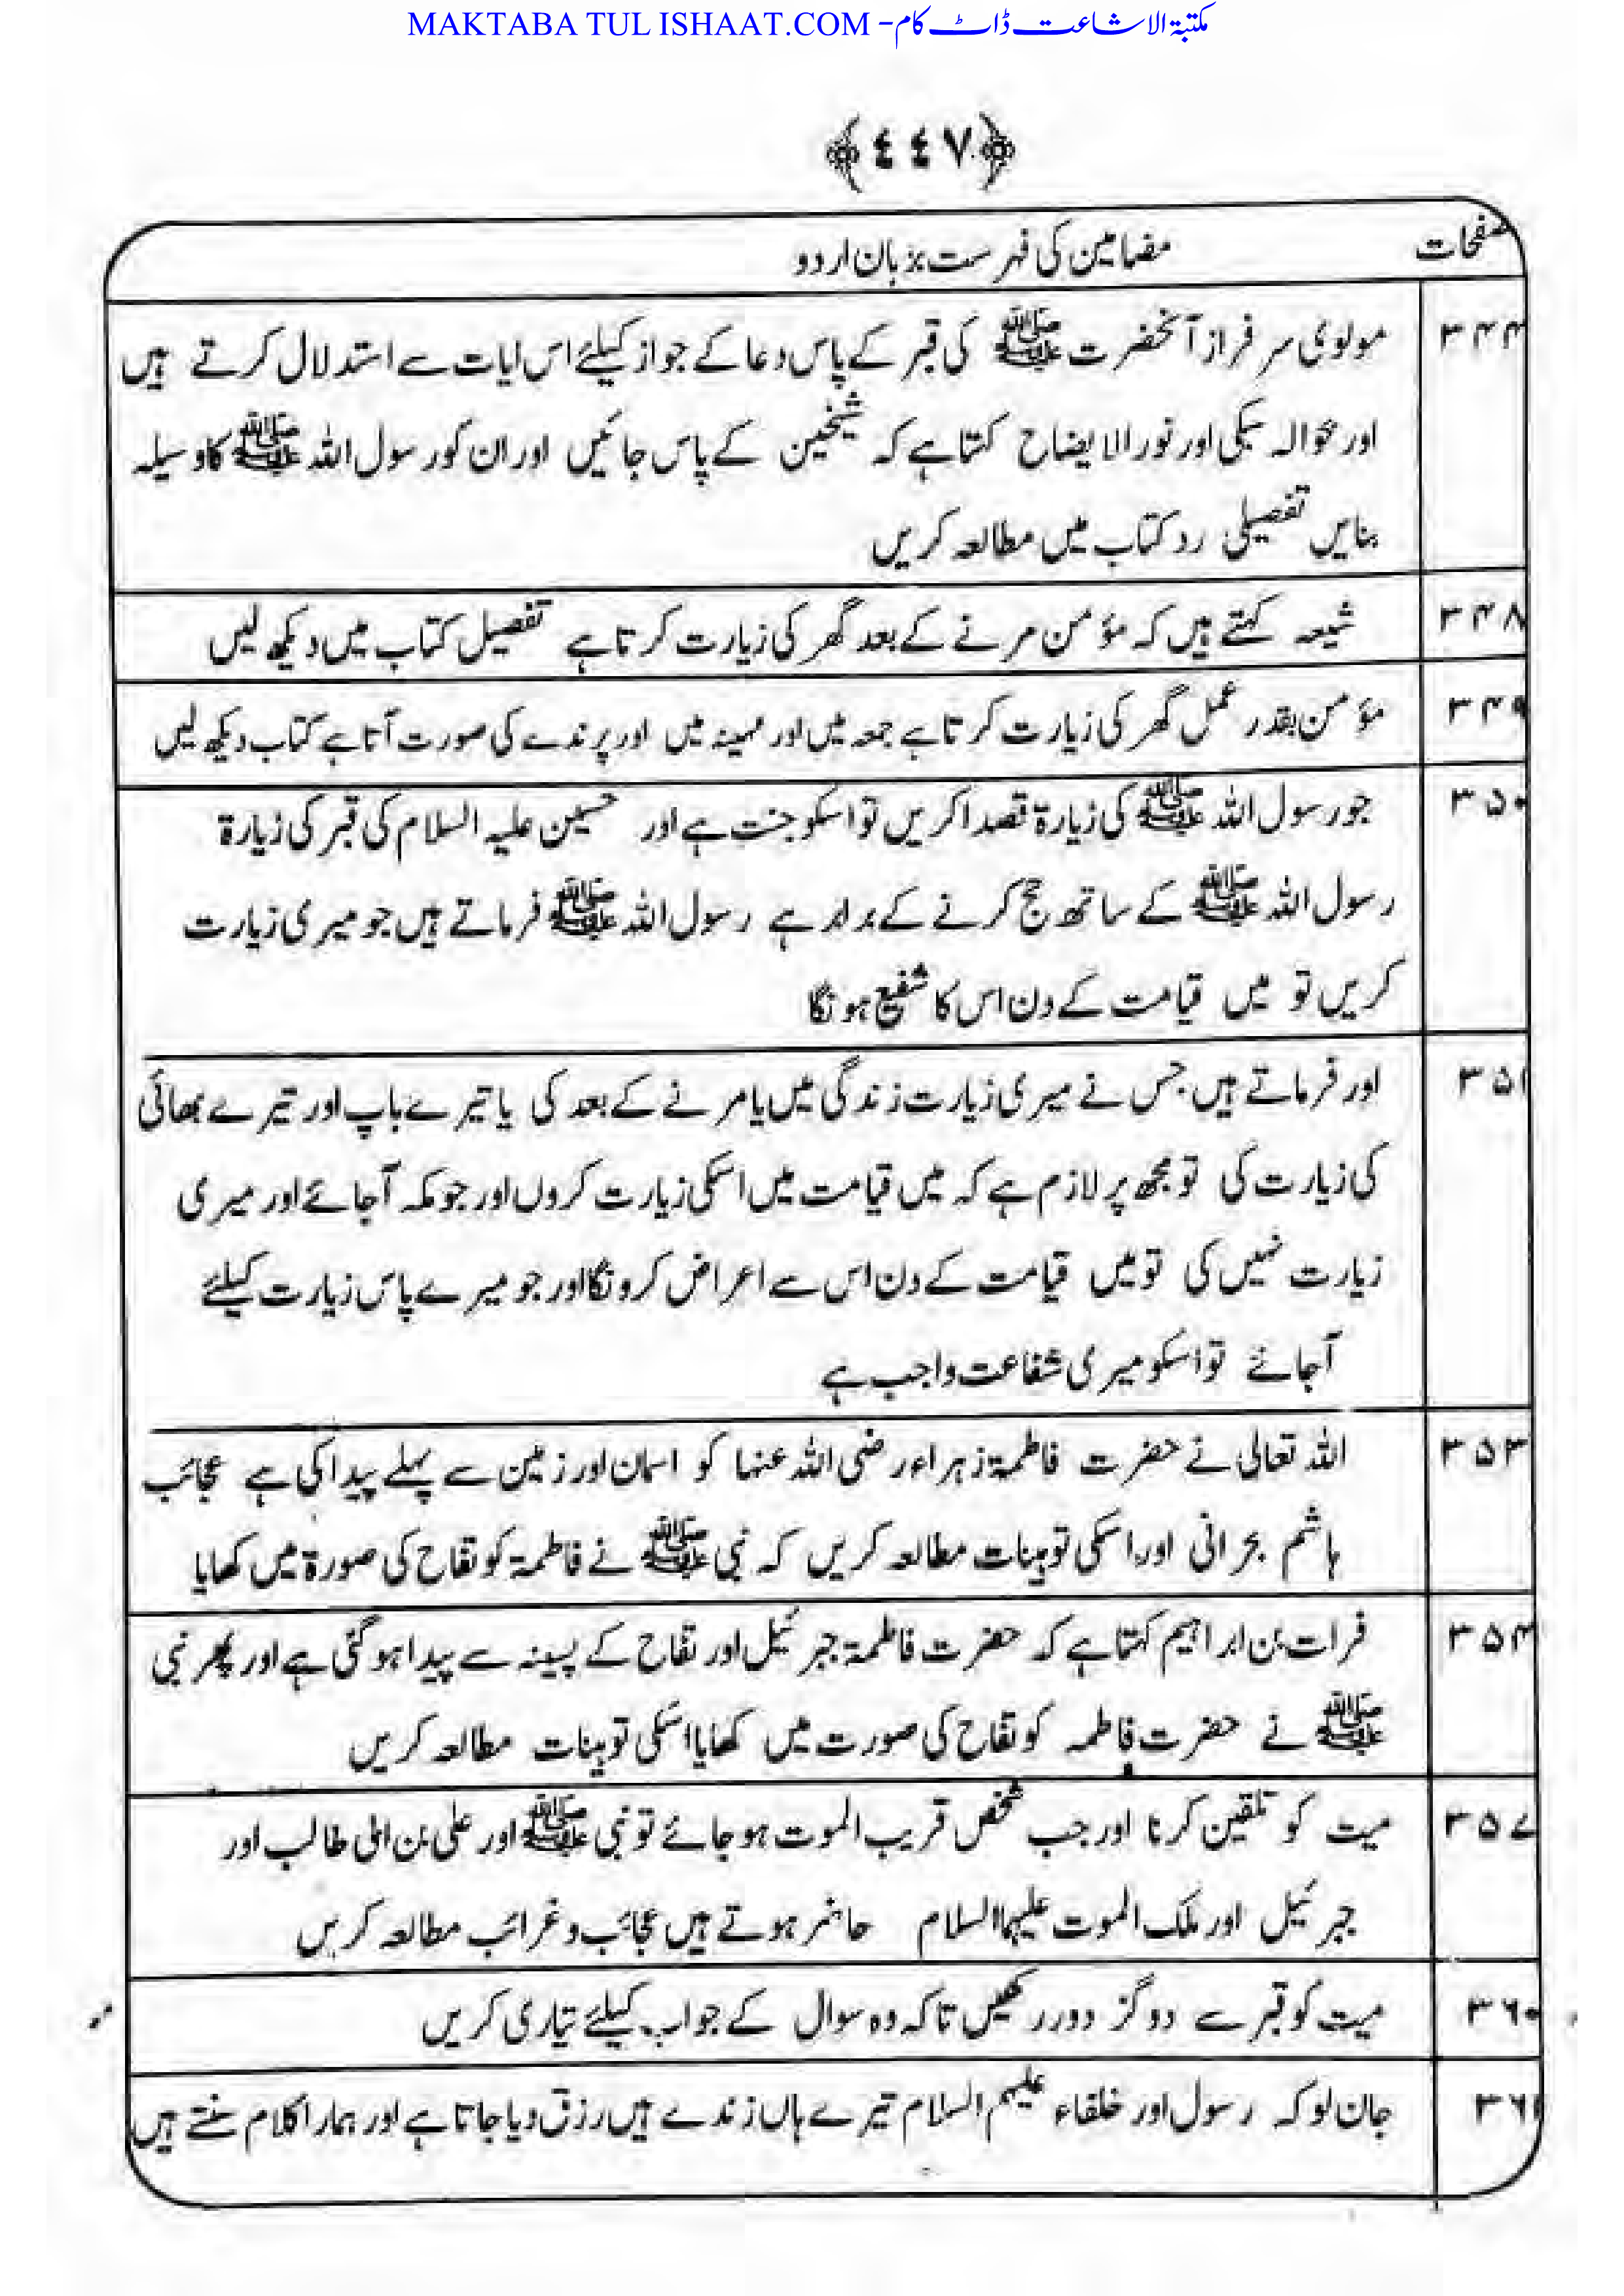 MAKTABA TUL ISHAAT.COM - مکتبۃ الاشاعت ڈاٹ کام
﴿٤٤٧﴾
صفحات مضامین کی فہرست بزبان اردو
۳۴۴ مولوی سرفراز آنحضرت ﷺ کی قبر کے پاس دعا کے جواز کیلئے اس ایات سے استدلال کرتے ہیں
اور حوالہ سبکی اور نور الایضاح کہتا ہے کہ شیخین کے پاس جائیں اور ان کو رسول اللہ ﷺ کا وسیلہ
بنایں تفصیلی رد کتاب میں مطالعہ کریں
۳۴۸ شیعہ کہتے ہیں کہ مؤمن مرنے کے بعد گھر کی زیارت کرتا ہے تفصیل کتاب میں دیکھ لیں
۳۴۹ مؤمن بقدر عمل گھر کی زیارت کرتا ہے جمعہ میں اور مہینہ میں اور پرندے کی صورت آتا ہے کتاب دیکھ لیں
۳۵۰ جو رسول اللہ ﷺ کی زیارۃ قصدا کریں تو اسکو جنت ہے اور حسین علیہ السلام کی قبر کی زیارۃ
رسول اللہ ﷺ کے ساتھ حج کرنے کے برابر ہے رسول اللہ ﷺ فرماتے ہیں جو میری زیارت
کریں تو میں قیامت کے دن اس کا شفیع ہونگا
۳۵۱ اور فرماتے ہیں جس نے میری زیارت زندگی میں یا مرنے کے بعد کی یا تیرے باپ اور تیرے بھائی
کی زیارت کی تو مجھ پر لازم ہے کہ میں قیامت میں اسکی زیارت کروں اور جو مکہ آجائے اور میری
زیارت نہیں کی تو میں قیامت کے دن اس سے اعراض کرونگا اور جو میرے پاس زیارت کیلئے
آجائے تو اسکو میری شفاعت واجب ہے
۳۵۳ اللہ تعالی نے حضرت فاطمۃ زہراء رضی اللہ عنہا کو اسمان اور زمین سے پہلے پیدا کی ہے عجائب
ہاشم بحرانی اور اسکی توہینات مطالعہ کریں کہ نبی ﷺ نے فاطمۃ کو تفاح کی صورۃ میں کھایا
۳۵۴ فرات بن ابراہیم کہتا ہے کہ حضرت فاطمۃ جبرئیل اور تفاح کے پسینہ سے پیدا ہوگئی ہے اور پھر نبی
ﷺ نے حضرت فاطمہ کو تفاح کی صورت میں کھایا اسکی توہینات مطالعہ کریں
۳۵۷ میت کو تلقین کرنا اور جب شخص قریب الموت ہو جائے تو نبی ﷺ اور علی بن ابی طالب اور
جبرئیل اور ملک الموت علیہما السلام حاضر ہوتے ہیں عجائب و غرائب مطالعہ کریں
۳۶۰ میت کو قبر سے دو گز دور رکھیں تاکہ وہ سوال کے جواب کیلئے تیاری کریں
۳۶۱ جان لو کہ رسول اور خلفاء علیہم السلام تیرے ہاں زندے ہیں رزق دیا جاتا ہے اور ہمارا کلام سنتے ہیں